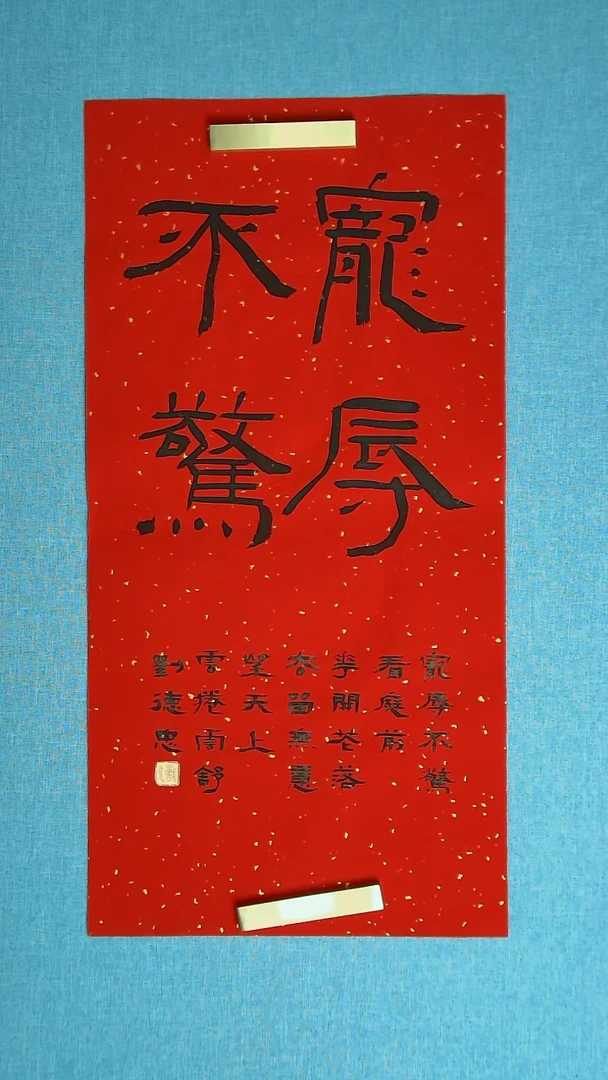 寵辱
不驚
寵辱不驚
看庭前
華開花落
去留無意
望天上
雲捲雲舒
劉德忠